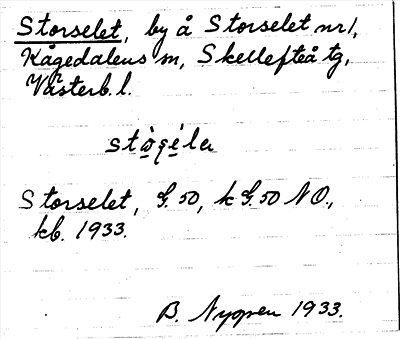 Storselet, by å Storselet nr 1,
Kågedalens sn, Skellefteå tg,
Västerb. l.
Storselet, G. 50, k G. 50 NO.,
kb. 1933.
B. Nygren 1933.